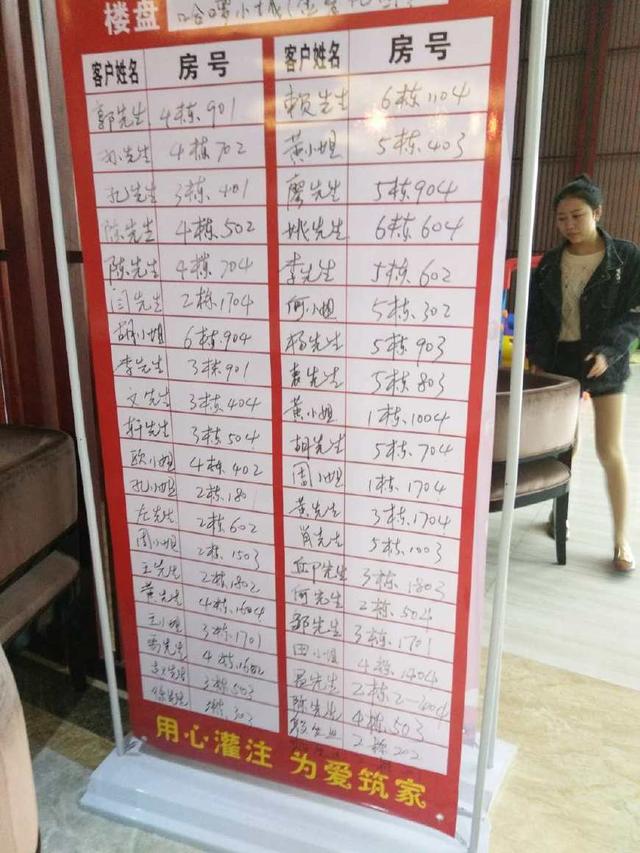 楼盘
客户姓名 房号
郭先生 4栋.901
孙先生 4栋702
孔先生 3栋.401
陈先生 4栋.502
陈先生 4栋704
闫先生 2栋1704
胡小姐 6栋.904
李先生 3栋901
文先生 3栋404
轩先生 3栋504
欧小姐 4栋.402
孔小姐 2栋.1801
左先生 2栋602
周小姐 2栋.1503
王先生 2栋.1802
黄先生 4栋.1604
王小姐 3栋.1701
4栋.1602
503
302
客户姓名 房号
赖先生 6栋1104
黄小姐 5栋.403
廖先生 5栋904
姚先生 6栋604
李先生 5栋602
何小姐 5栋.302
杨先生 5栋.903
袁先生 5栋803
黄小姐 1栋.1004
胡先生 5栋.704
周小姐 1栋1704
黄先生 3栋1704
肖先生 5栋1003
邱先生 3栋.1803
何先生 2栋.504
郭先生 3栋.1701
田小姐 4栋.1404
聂先生 2栋
陈先生 4栋.503
2栋202
用心灌注 为爱筑家